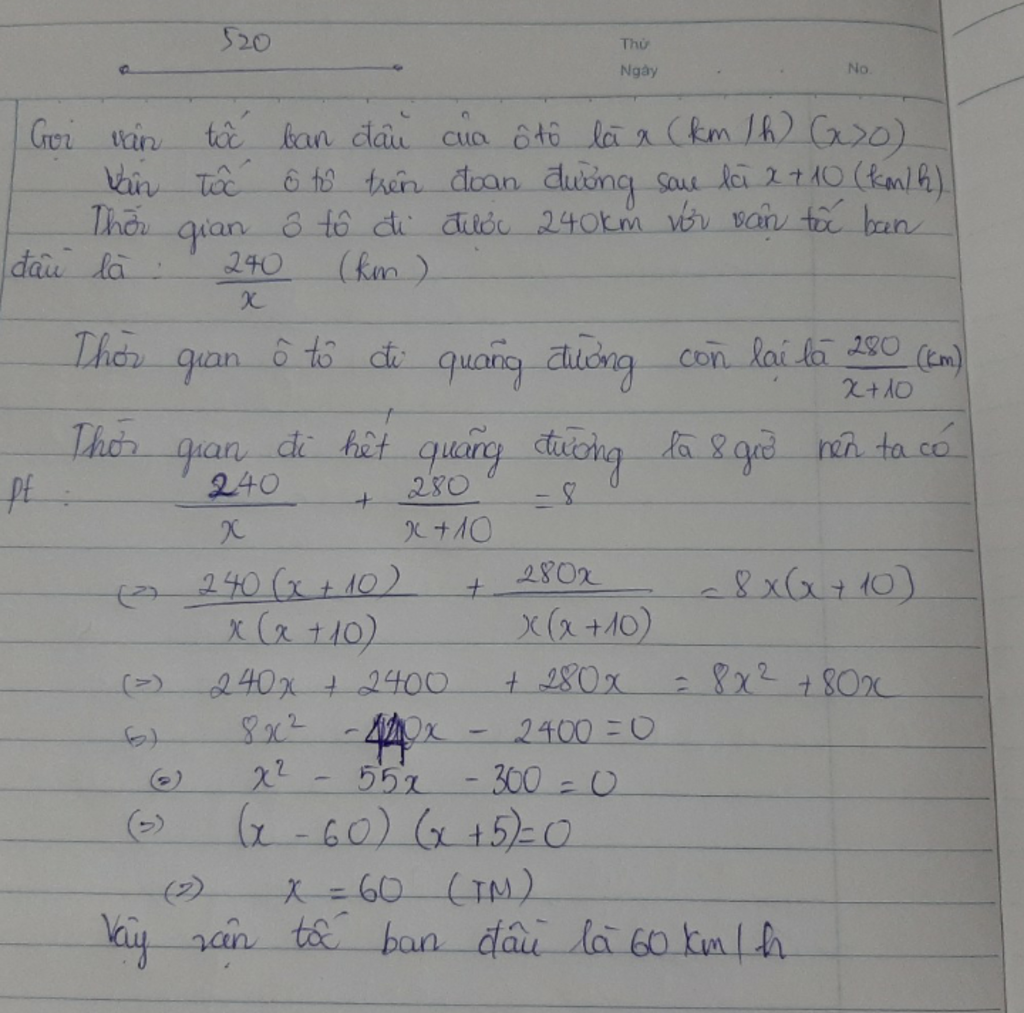 520
Thứ
Ngày . . No.
Gọi vận tốc ban đầu của ô tô là x (km/h) (x>0)
Vận tốc ô tô trên đoạn đường sau là x+10 (km/h)
Thời gian ô tô đi được 240km với vận tốc ban
đầu là : 240/x (km)
Thời gian ô tô đi quãng đường còn lại là 280/(x+10) (km)
Thời gian đi hết quãng đường là 8 giờ nên ta có
pt : 240/x + 280/(x+10) = 8
(=) 240(x+10)/x(x+10) + 280x/x(x+10) = 8x(x+10)
(=) 240x + 2400 + 280x = 8x² + 80x
(=) 8x² - 440x - 2400 = 0
(=) x² - 55x - 300 = 0
(=) (x - 60) (x + 5) = 0
(=) x = 60 (TM)
Vậy vận tốc ban đầu là 60 km/h